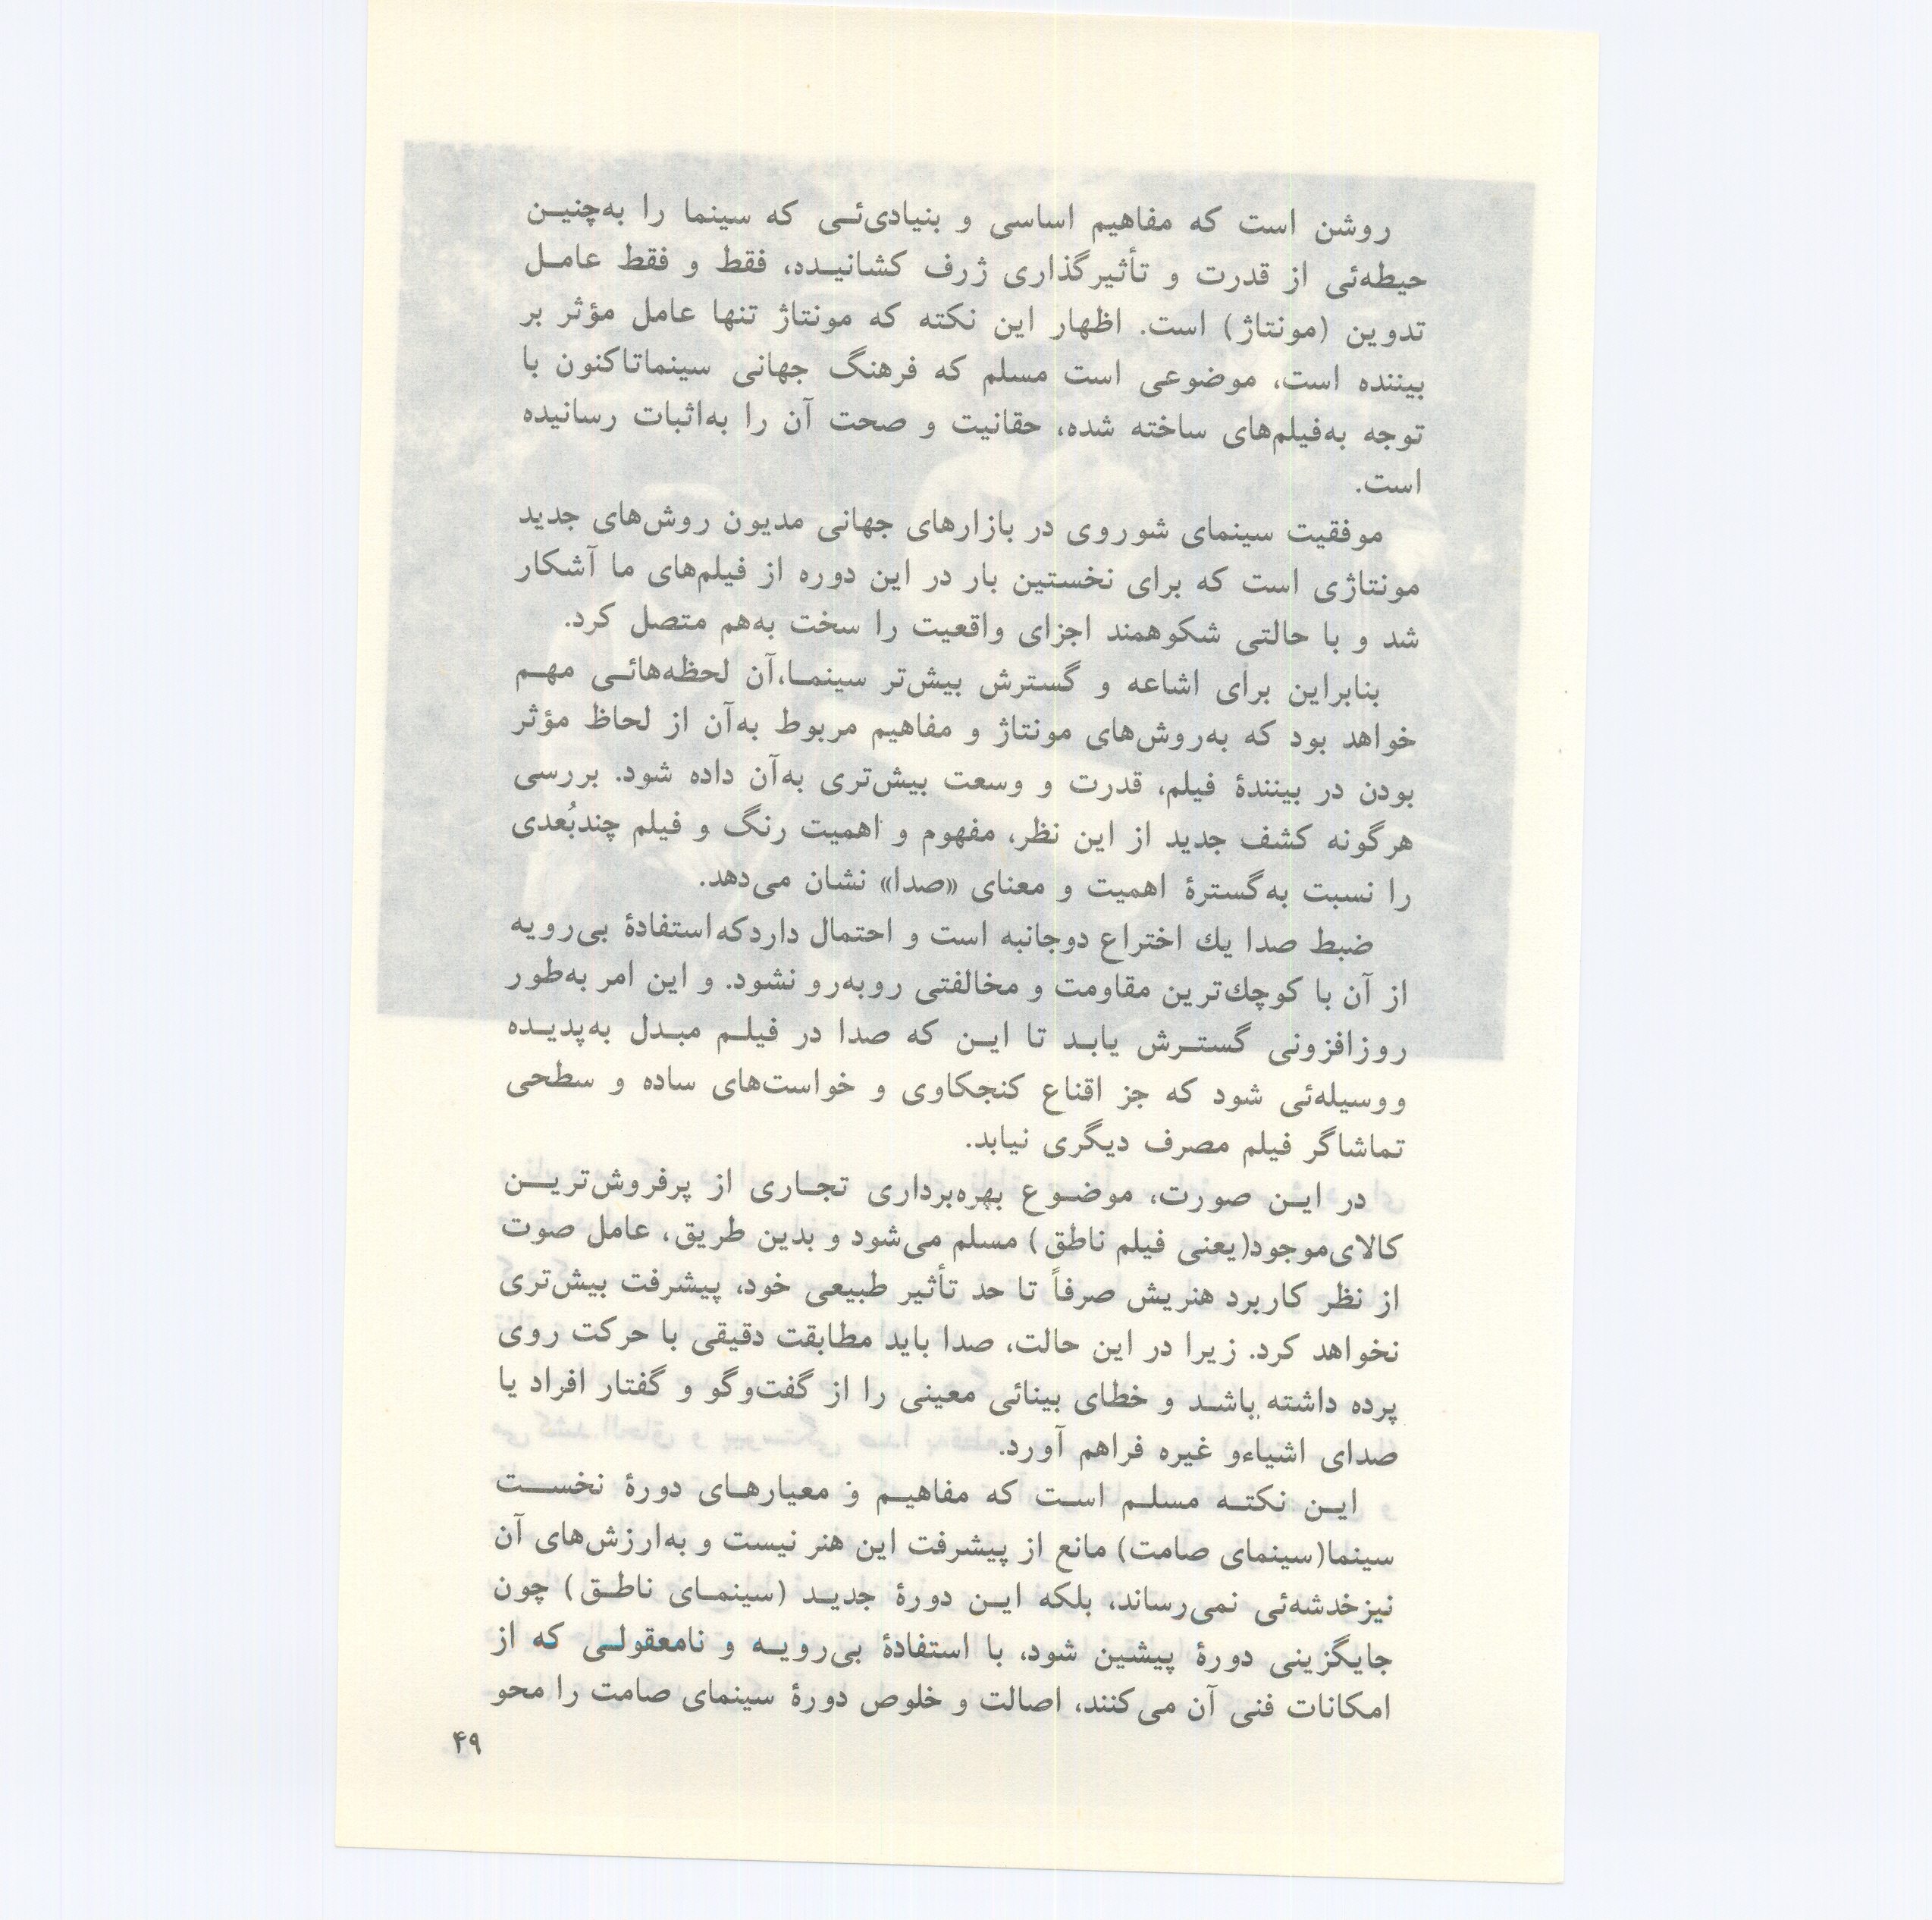 روشن است که مفاهیم اساسی و بنیادی‌ئـی که سینما را به‌چنیـن
حیطه‌ئی از قدرت و تأثیرگذاری ژرف کشانیـده، فقط و فقط عامـل
تدوین (مونتاژ) است. اظهار این نکته که مونتاژ تنها عامل مؤثر بر
بیننده است، موضوعی است مسلم که فرهنگ جهانی سینماتاکنون با
توجه به‌فیلم‌های ساخته شده، حقانیت و صحت آن را به‌اثبات رسانیده
است.
موفقیت سینمای شوروی در بازارهای جهانی مدیون روش‌های جدید
مونتاژی است که برای نخستین بار در این دوره از فیلم‌های ما آشکار
شد و با حالتی شکوهمند اجزای واقعیت را سخت به‌هم متصل کرد.
بنابراین برای اشاعه و گسترش بیش‌تر سینمـا،آن لحظه‌هائـی مهـم
خواهد بود که به‌روش‌های مونتاژ و مفاهیم مربوط به‌آن از لحاظ مؤثر
بودن در بینندۀ فیلم، قدرت و وسعت بیش‌تری به‌آن داده شود. بررسی
هرگونه کشف جدید از این نظر، مفهوم و اهمیت رنگ و فیلم چندبُعدی
را نسبت به‌گسترۀ اهمیت و معنای «صدا» نشان می‌دهد.
ضبط صدا یك اختراع دوجانبه است و احتمال داردکه‌استفادۀ بی‌رویه
از آن با کوچك‌ترین مقاومت و مخالفتی روبه‌رو نشود. و این امر به‌طور
روزافزونی گستـرش یابـد تا ایـن که صدا در فیلـم مبـدل به‌پدیـده
ووسیله‌ئی شود که جز اقناع کنجکاوی و خواست‌های ساده و سطحی
تماشاگر فیلم مصرف دیگری نیابد.
در ایـن صورت، موضـوع بهره‌برداری تجـاری از پرفروش‌تریـن
کالای‌موجود(یعنی فیلم ناطق) مسلم می‌شود و بدین طریق، عامل صوت
از نظر کاربرد هنریش صرفاً تا حد تأثیر طبیعی خود، پیشرفت بیش‌تری
نخواهد کرد. زیرا در این حالت، صدا باید مطابقت دقیقی با حرکت روی
پرده داشته باشـد و خطای بینائی معینی را از گفت‌وگو و گفتار افراد یا
صدای اشیاءو غیره فراهم آورد.
ایـن نکتـه مسلـم اسـت که مفاهیـم و معیارهـای دورۀ نخسـت
سینما(سینمای صامت) مانع از پیشرفت این هنر نیست و به‌ارزش‌های آن
نیزخدشه‌ئی نمی‌رساند، بلکه ایـن دورۀ جدیـد (سینمـای ناطـق) چون
جایگزینی دورۀ پیشین شود، با استفادۀ بی‌رویـه و نامعقولـی که از
امکانات فنی آن می‌کنند، اصالت و خلوص دورۀ سینمای صامت را محو
۴۹